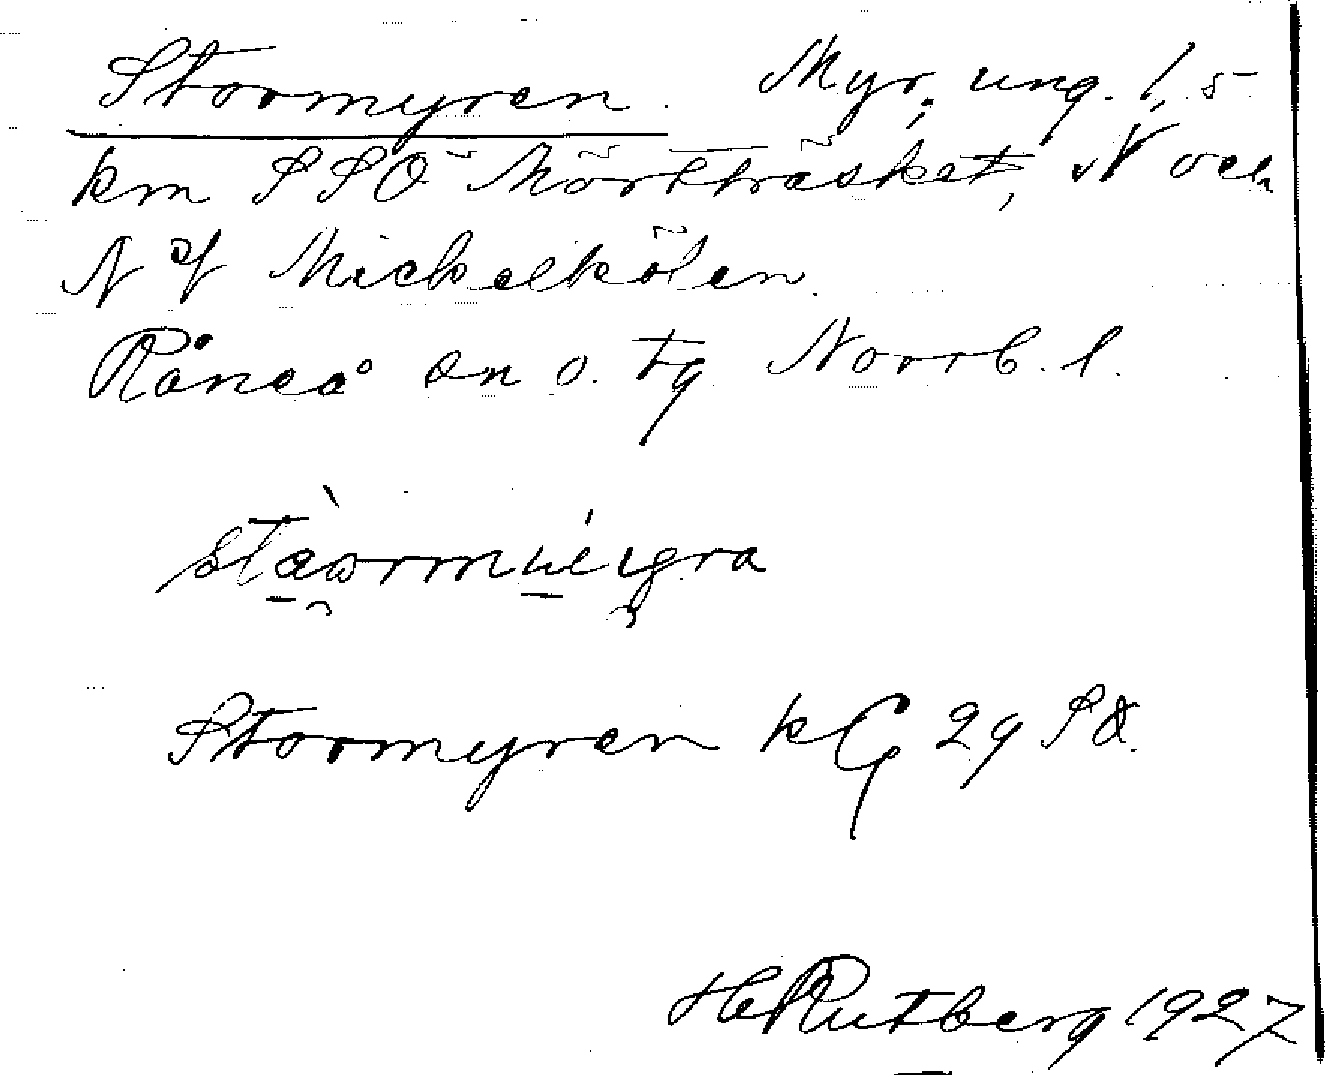 Stormyren. Myr, ung. 1,5
km SSÖ Mörtträsket, N och
N of Mickelkölen.
Råneå sn o. tg Norrb. l.
Stormyren kG 29 SÖ.
H Rutberg 1927